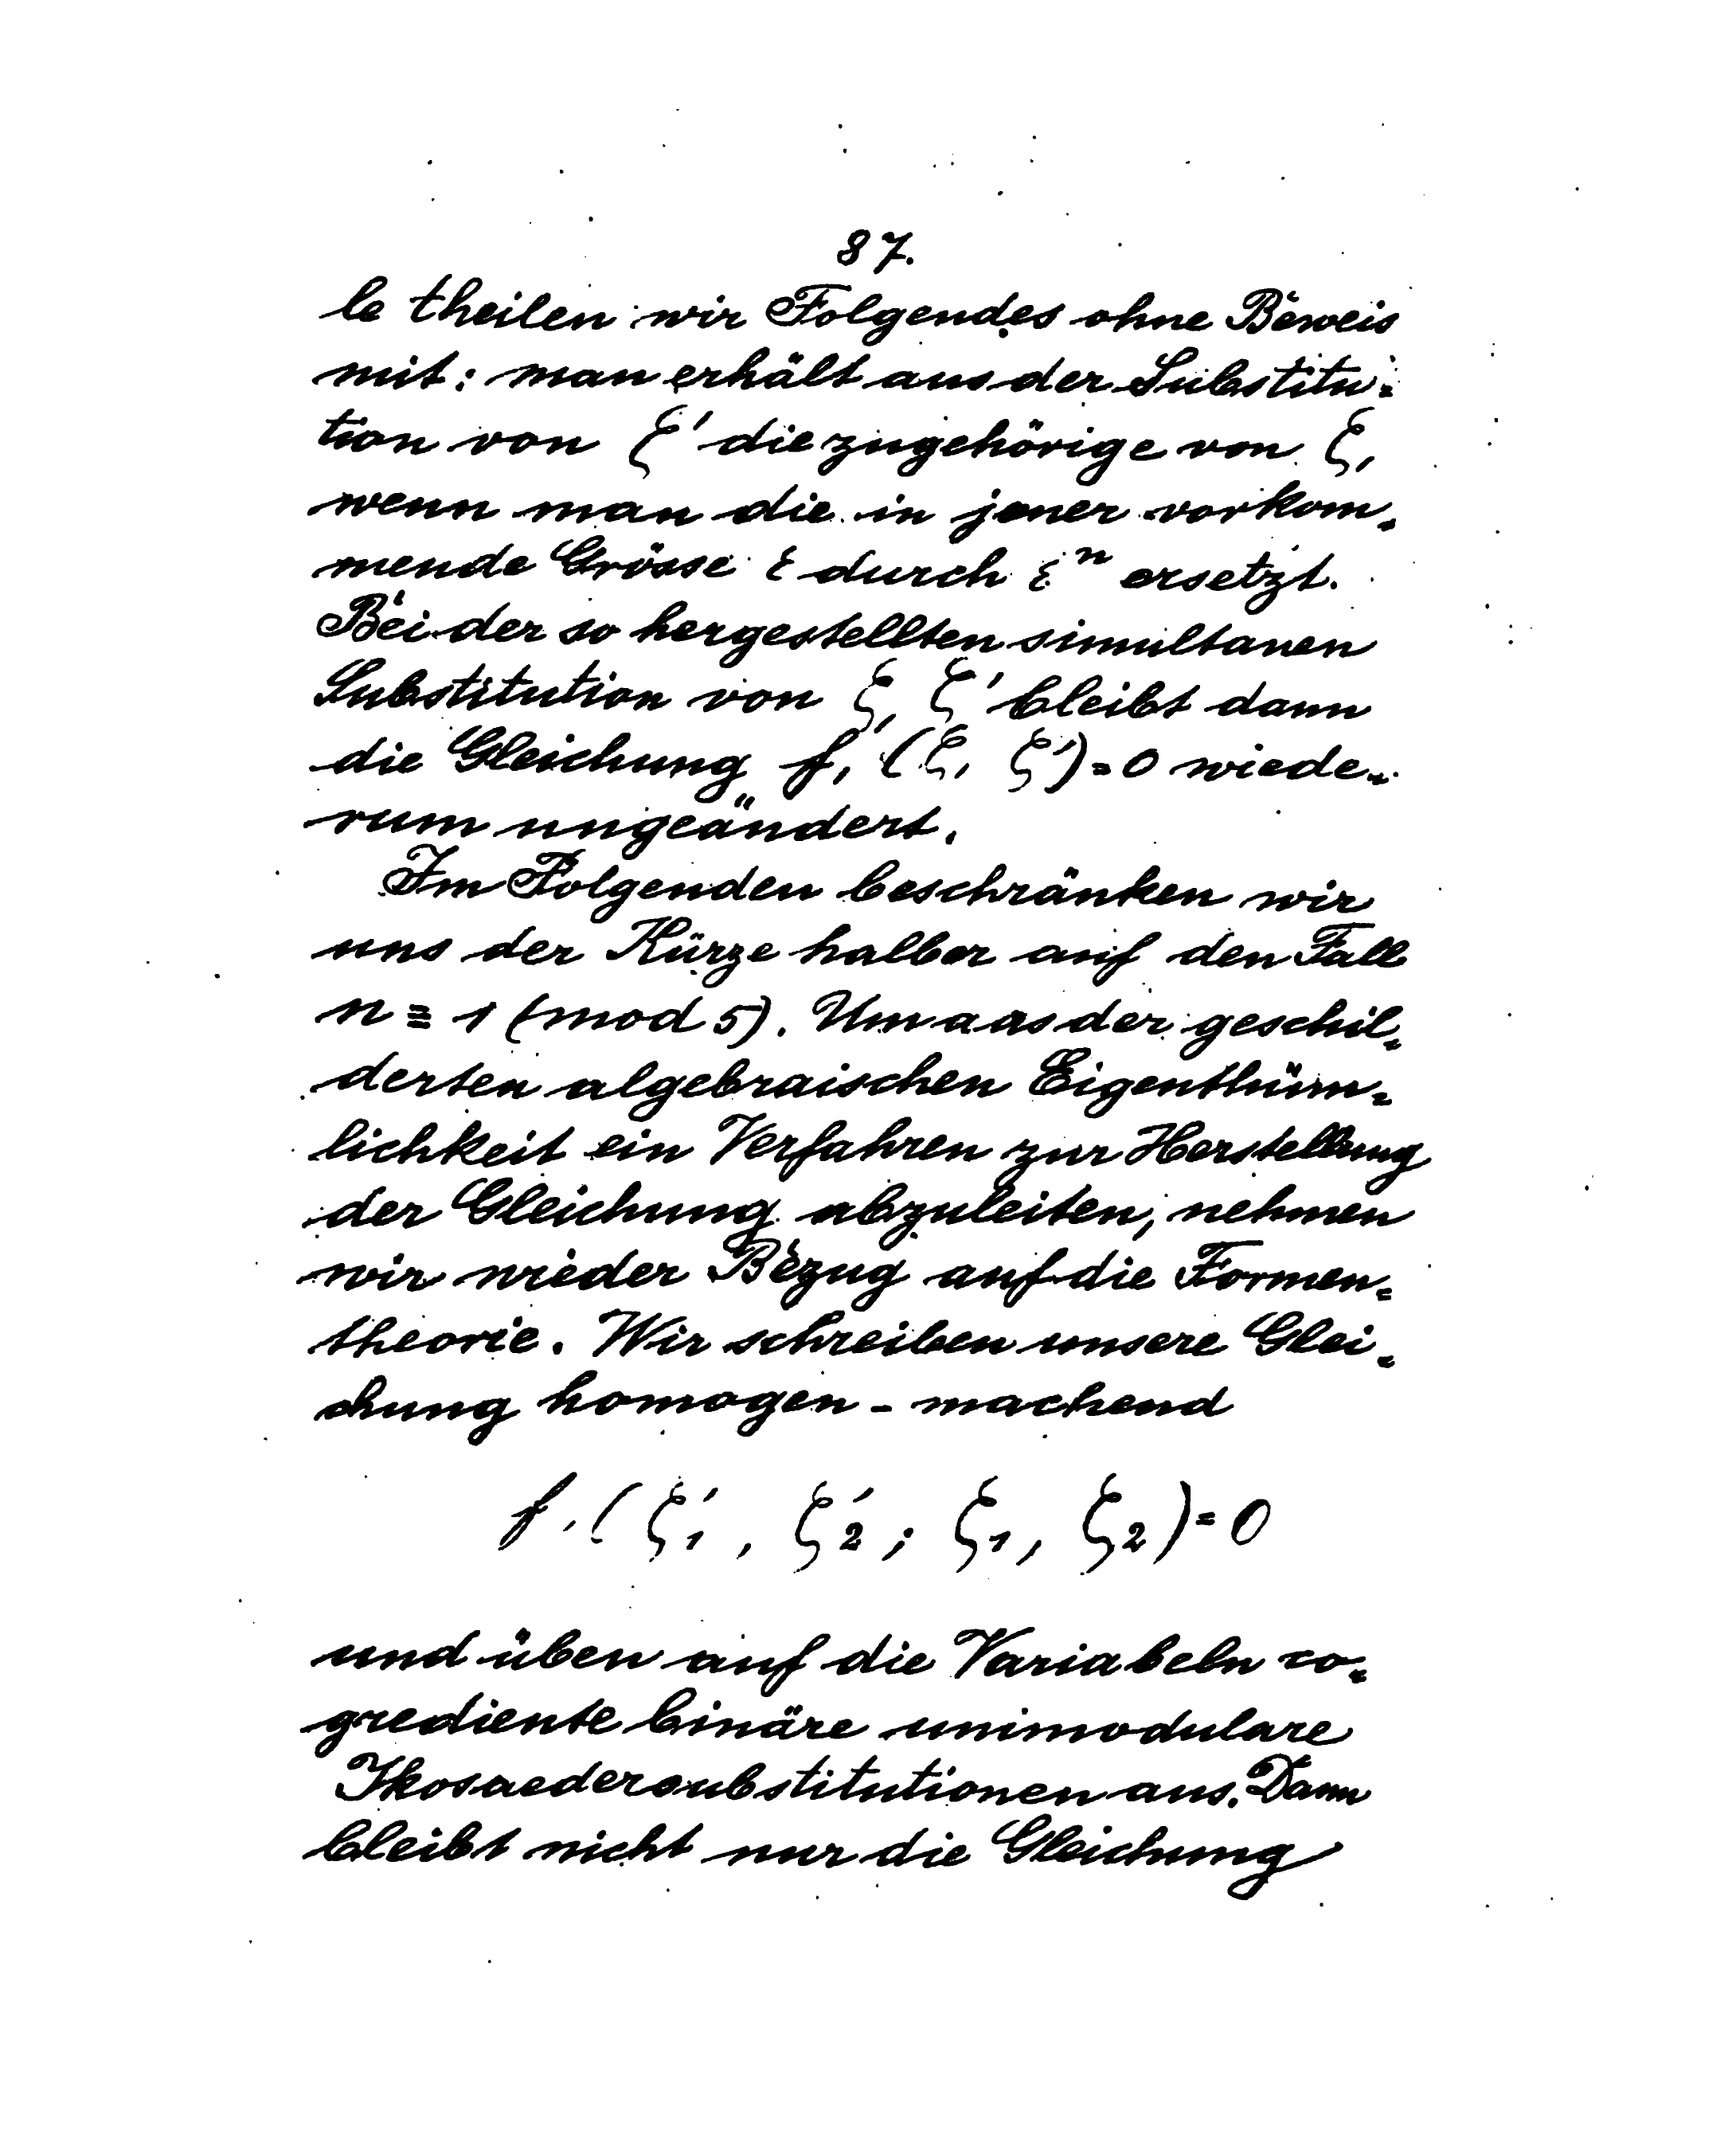 87.
le theilen wir Folgendes ohne Beweis
mit: man erhält aus der Substitu-
tion von ζ' die zugehörige von ζ,
wenn man die in jener vorkom-
mende Grösse ε durch εⁿ ersetzt.
Bei der so hergestellten simultanen
Substitution von ζ, ζ' bleibt dann
die Gleichung f, (ζ, ζ') = 0 wiede-
rum ungeändert.
Im Folgenden beschränken wir
uns der Kürze halber auf den Fall
n ≡ 1 (mod 5). Um aus der geschil-
derten algebraischen Eigenthüm-
lichkeit ein Verfahren zur Herstellung
der Gleichung abzuleiten, nehmen
wir wieder Bezug auf die Formen-
theorie. Wir schreiben unsere Glei-
chung homogen - machend
f, (ζ'₁, ζ'₂; ζ₁, ζ₂) = 0
und üben auf die Variabeln co-
grediente binäre unimodulare
Ikosaedersubstitutionen aus. Dann
bleibt nicht nur die Gleichung